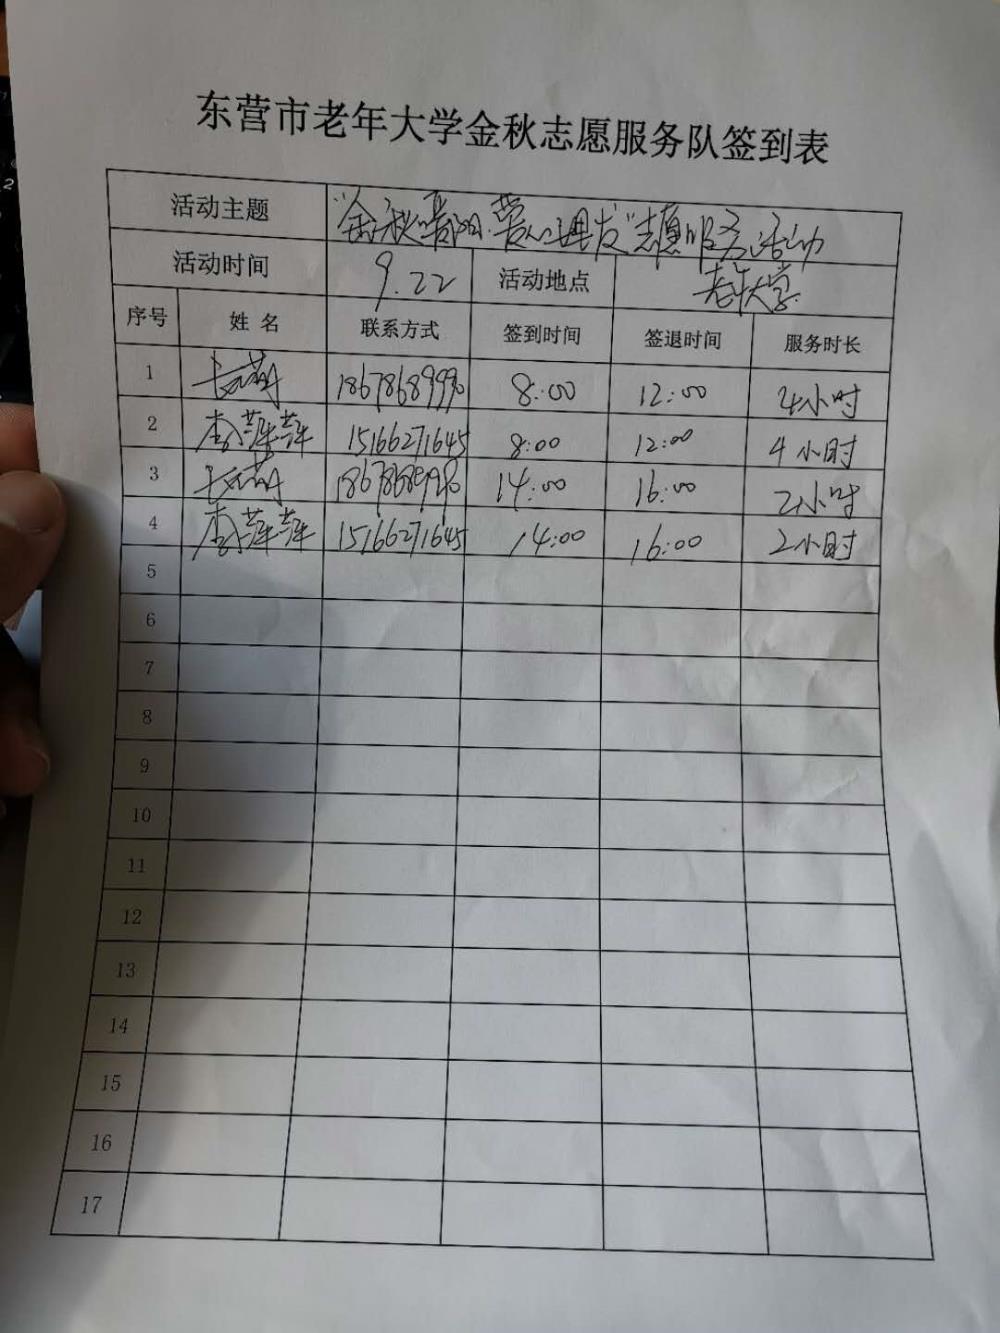 东营市老年大学金秋志愿服务队签到表
活动主题 "金秋 志愿服务活动
活动时间 9.22 活动地点 老年大学
序号 姓名 联系方式 签到时间 签退时间 服务时长
1 18678689990 8:00 12:00 4小时
2 李萍萍 15166271645 8:00 12:00 4小时
3 14:00 16:00 2小时
4 李萍萍 15166271645 14:00 16:00 2小时
5
6
7
8
9
10
11
12
13
14
15
16
17